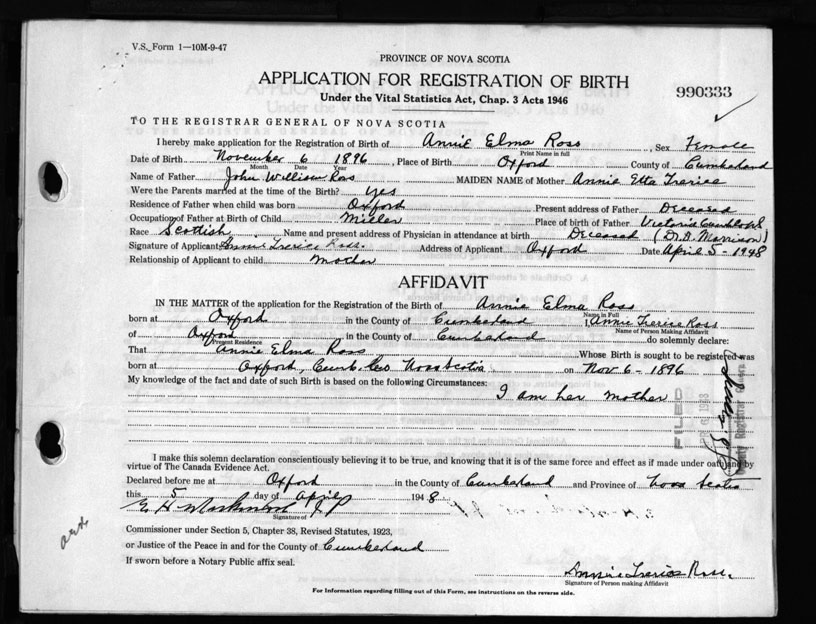 V.S. Form 1—10M-9-47
PROVINCE OF NOVA SCOTIA
APPLICATION FOR REGISTRATION OF BIRTH
Under the Vital Statistics Act, Chap. 3 Acts 1946
990333
TO THE REGISTRAR GENERAL OF NOVA SCOTIA
I hereby make application for the Registration of Birth of Annie Elma Ross, Sex Female
Print Name in full
Date of Birth November 6 1896, Place of Birth Oxford County of Cumberland
Month Date Year
Name of Father John William Ross MAIDEN NAME of Mother Annie Etta
Were the Parents married at the time of the Birth? Yes
Residence of Father when child was born Oxford Present address of Father Deceased
Occupation of Father at Birth of Child Miller Place of birth of Father Victoria
Race Scottish Name and present address of Physician in attendance at birth Deceased (Dr. D. Morrison)
Signature of Applicant Annie Ross. Address of Applicant Oxford Date April 5 - 1948
Relationship of Applicant to child Mother
AFFIDAVIT
IN THE MATTER of the application for the Registration of the Birth of Annie Elma Ross
Name in Full
born at Oxford in the County of Cumberland I, Annie Ross
Name of Person Making Affidavit
of Oxford in the County of Cumberland do solemnly declare:
Present Residence
That Annie Elma Ross Whose Birth is sought to be registered was
born at Oxford, Cumb. Co Nova Scotia on Nov 6 - 1896
My knowledge of the fact and date of such Birth is based on the following Circumstances:
I am her mother
FILED
I make this solemn declaration conscientiously believing it to be true, and knowing that it is of the same force and effect as if made under oath and by
virtue of The Canada Evidence Act.
Declared before me at Oxford in the County of Cumberland and Province of Nova Scotia
this 5 day of April 1948
E. H. J P
Signature of
Commissioner under Section 5, Chapter 38, Revised Statutes, 1923,
or Justice of the Peace in and for the County of Cumberland
If sworn before a Notary Public affix seal.
Annie Ross.
Signature of Person making Affidavit
For Information regarding filling out of this Form, see instructions on the reverse side.